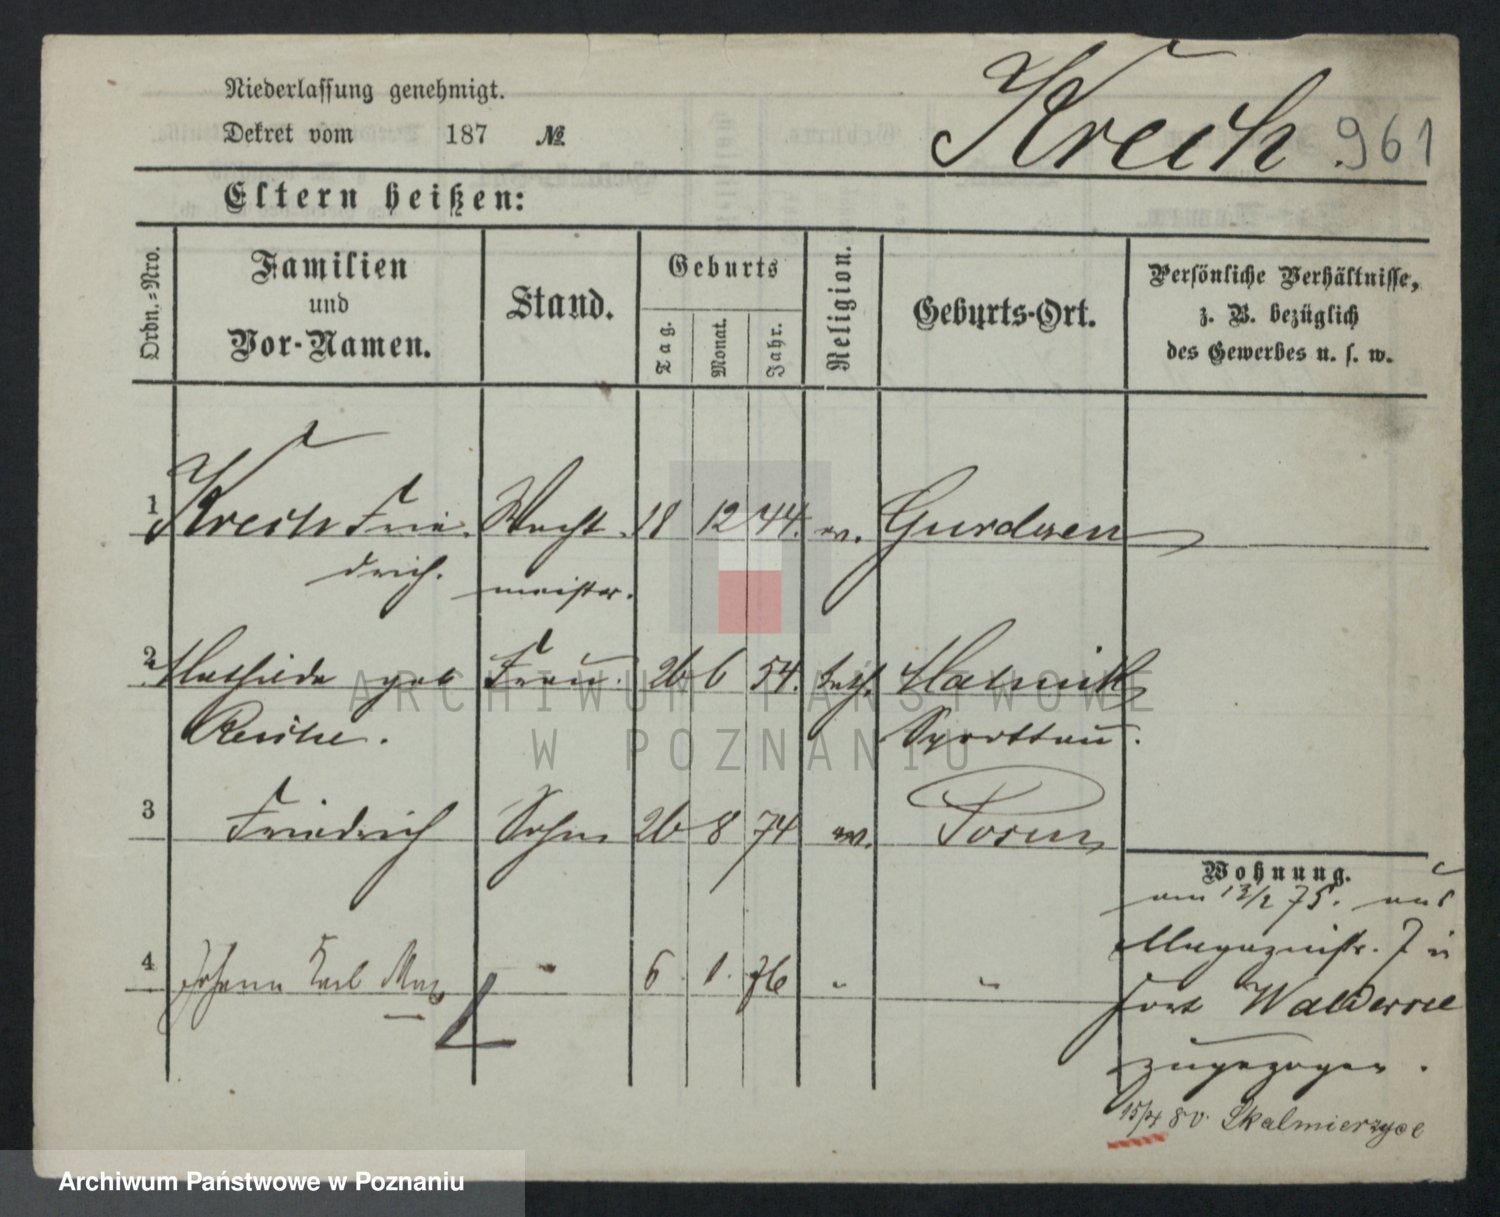 Niederlassung genehmigt.
Dekret vom 187 №
Krech 961
Eltern heißen:
Ordn.=Nro.
Familien
und
Vor-Namen.
Stand.
Geburts
Tag.
Monat.
Jahr.
Religion.
Geburts-Ort.
Persönliche Verhältnisse,
z. B. bezüglich
des Gewerbes u. s. w.
1 Krech Frie Wacht 18 12 44. ev.
drich. meister.
2 Mathilde geb Frau. 26 6 54. kath.
Sprottau.
3 Friedrich Sohn 26 8 74 ev. Posen
4 Johann Karl Max " 6. 1. 76 " "
Wohnung.
am 13/2 75. aus
Magazinstr. 7 in
Fort Waldersee
zugezogen.
15/4 80. Skalmierzyce
ARCHIWUM PAŃSTWOWE
W POZNANIU
Archiwum Państwowe w Poznaniu